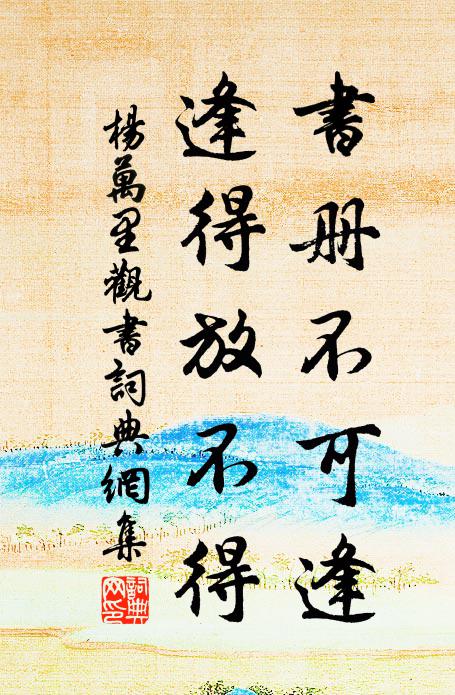 書册不可逢
逢得放不得
楊萬里觀書詞典網集
詞典